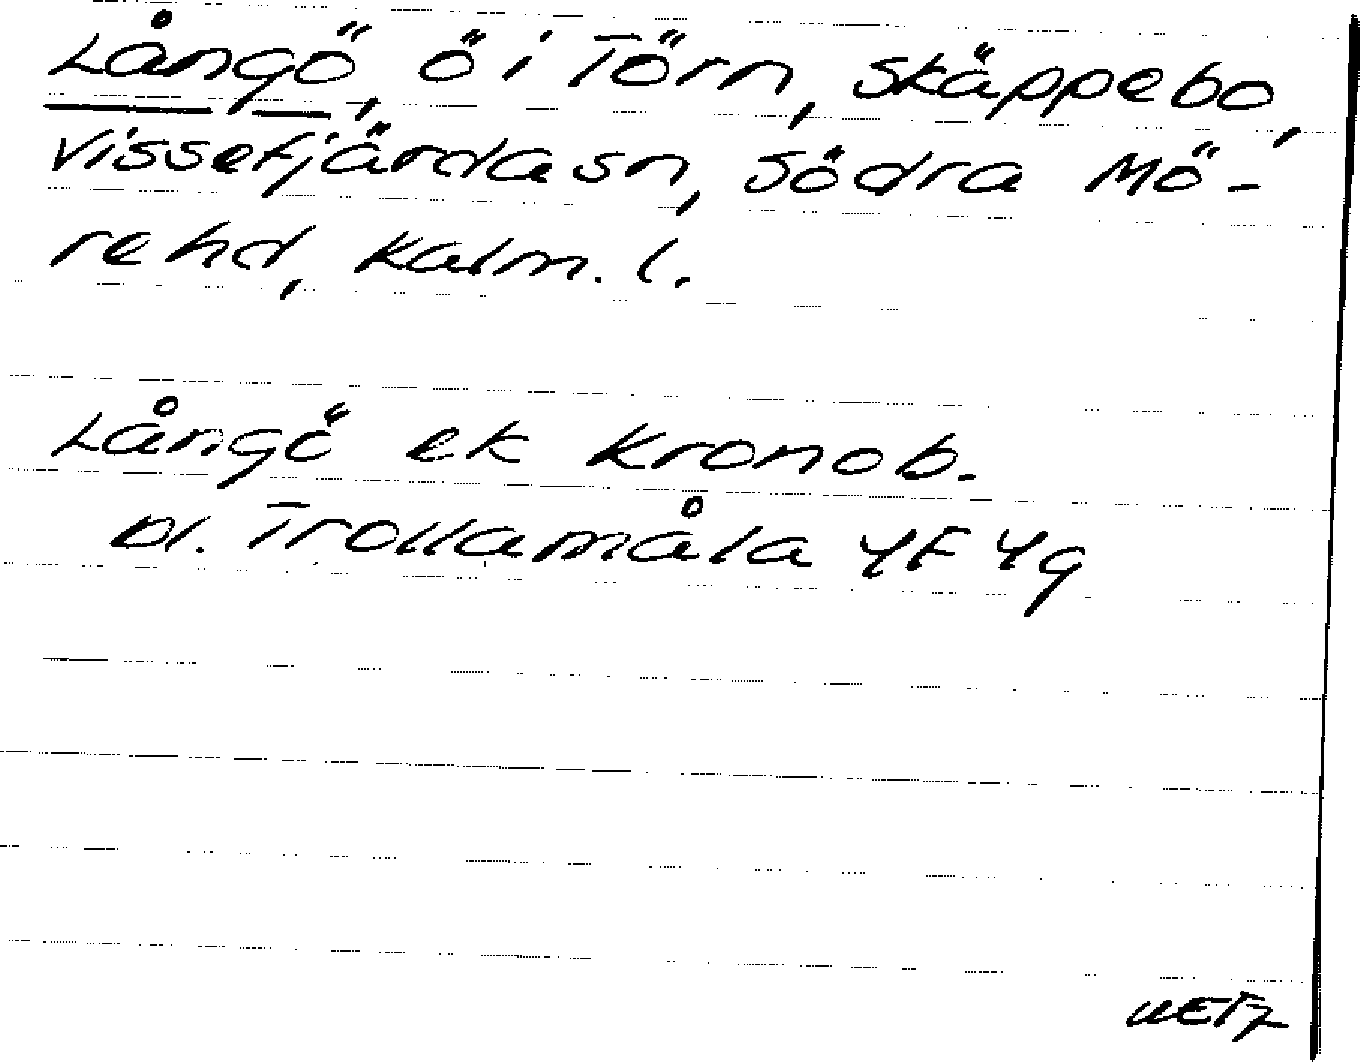 Långö, ö i Törn, Skäppebo,
Vissefjärda sn, Södra Mö-
re hd, Kalm. l.
Långö ek Kronob.
bl. Trollamåla 4F 4g